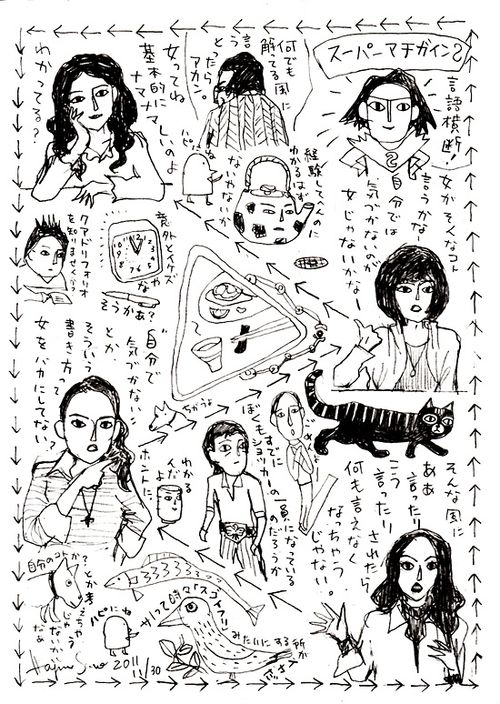 スーパーマチガイン2
言語横断!
2
女かそんなコト
言うかな
自分では
気づかないのが
女じゃないかなー
何でも
解ってる風に
言
うとったら
アカン。
経験してへんのに
わかるはず
ないやない
女ってね
基本的に
ナマナマしいのよ
わかってる?
クアドリフォリオ
を知りませんか?
意外とイケズ
やな
そうかあ?
12
1
2
3
4
5
9
10
11
"自分で
気づかない"
とか、
そういう
書き方って
女をバカにしてない?
ちがうよ
すでに
ぼくもショッカーの一員になっている
のだろうか
わかる
んだ
よ
ホントに、
そんな風に
ああ
言ったり
こう
言ったりされたら
何も言えなく
なっちゃう
じゃない。
自分のコトか?
とか考
えちゃう
じゃ
ない
なあ
ハピにね
みたいにする所が
Hajime S.no 2011 11/30